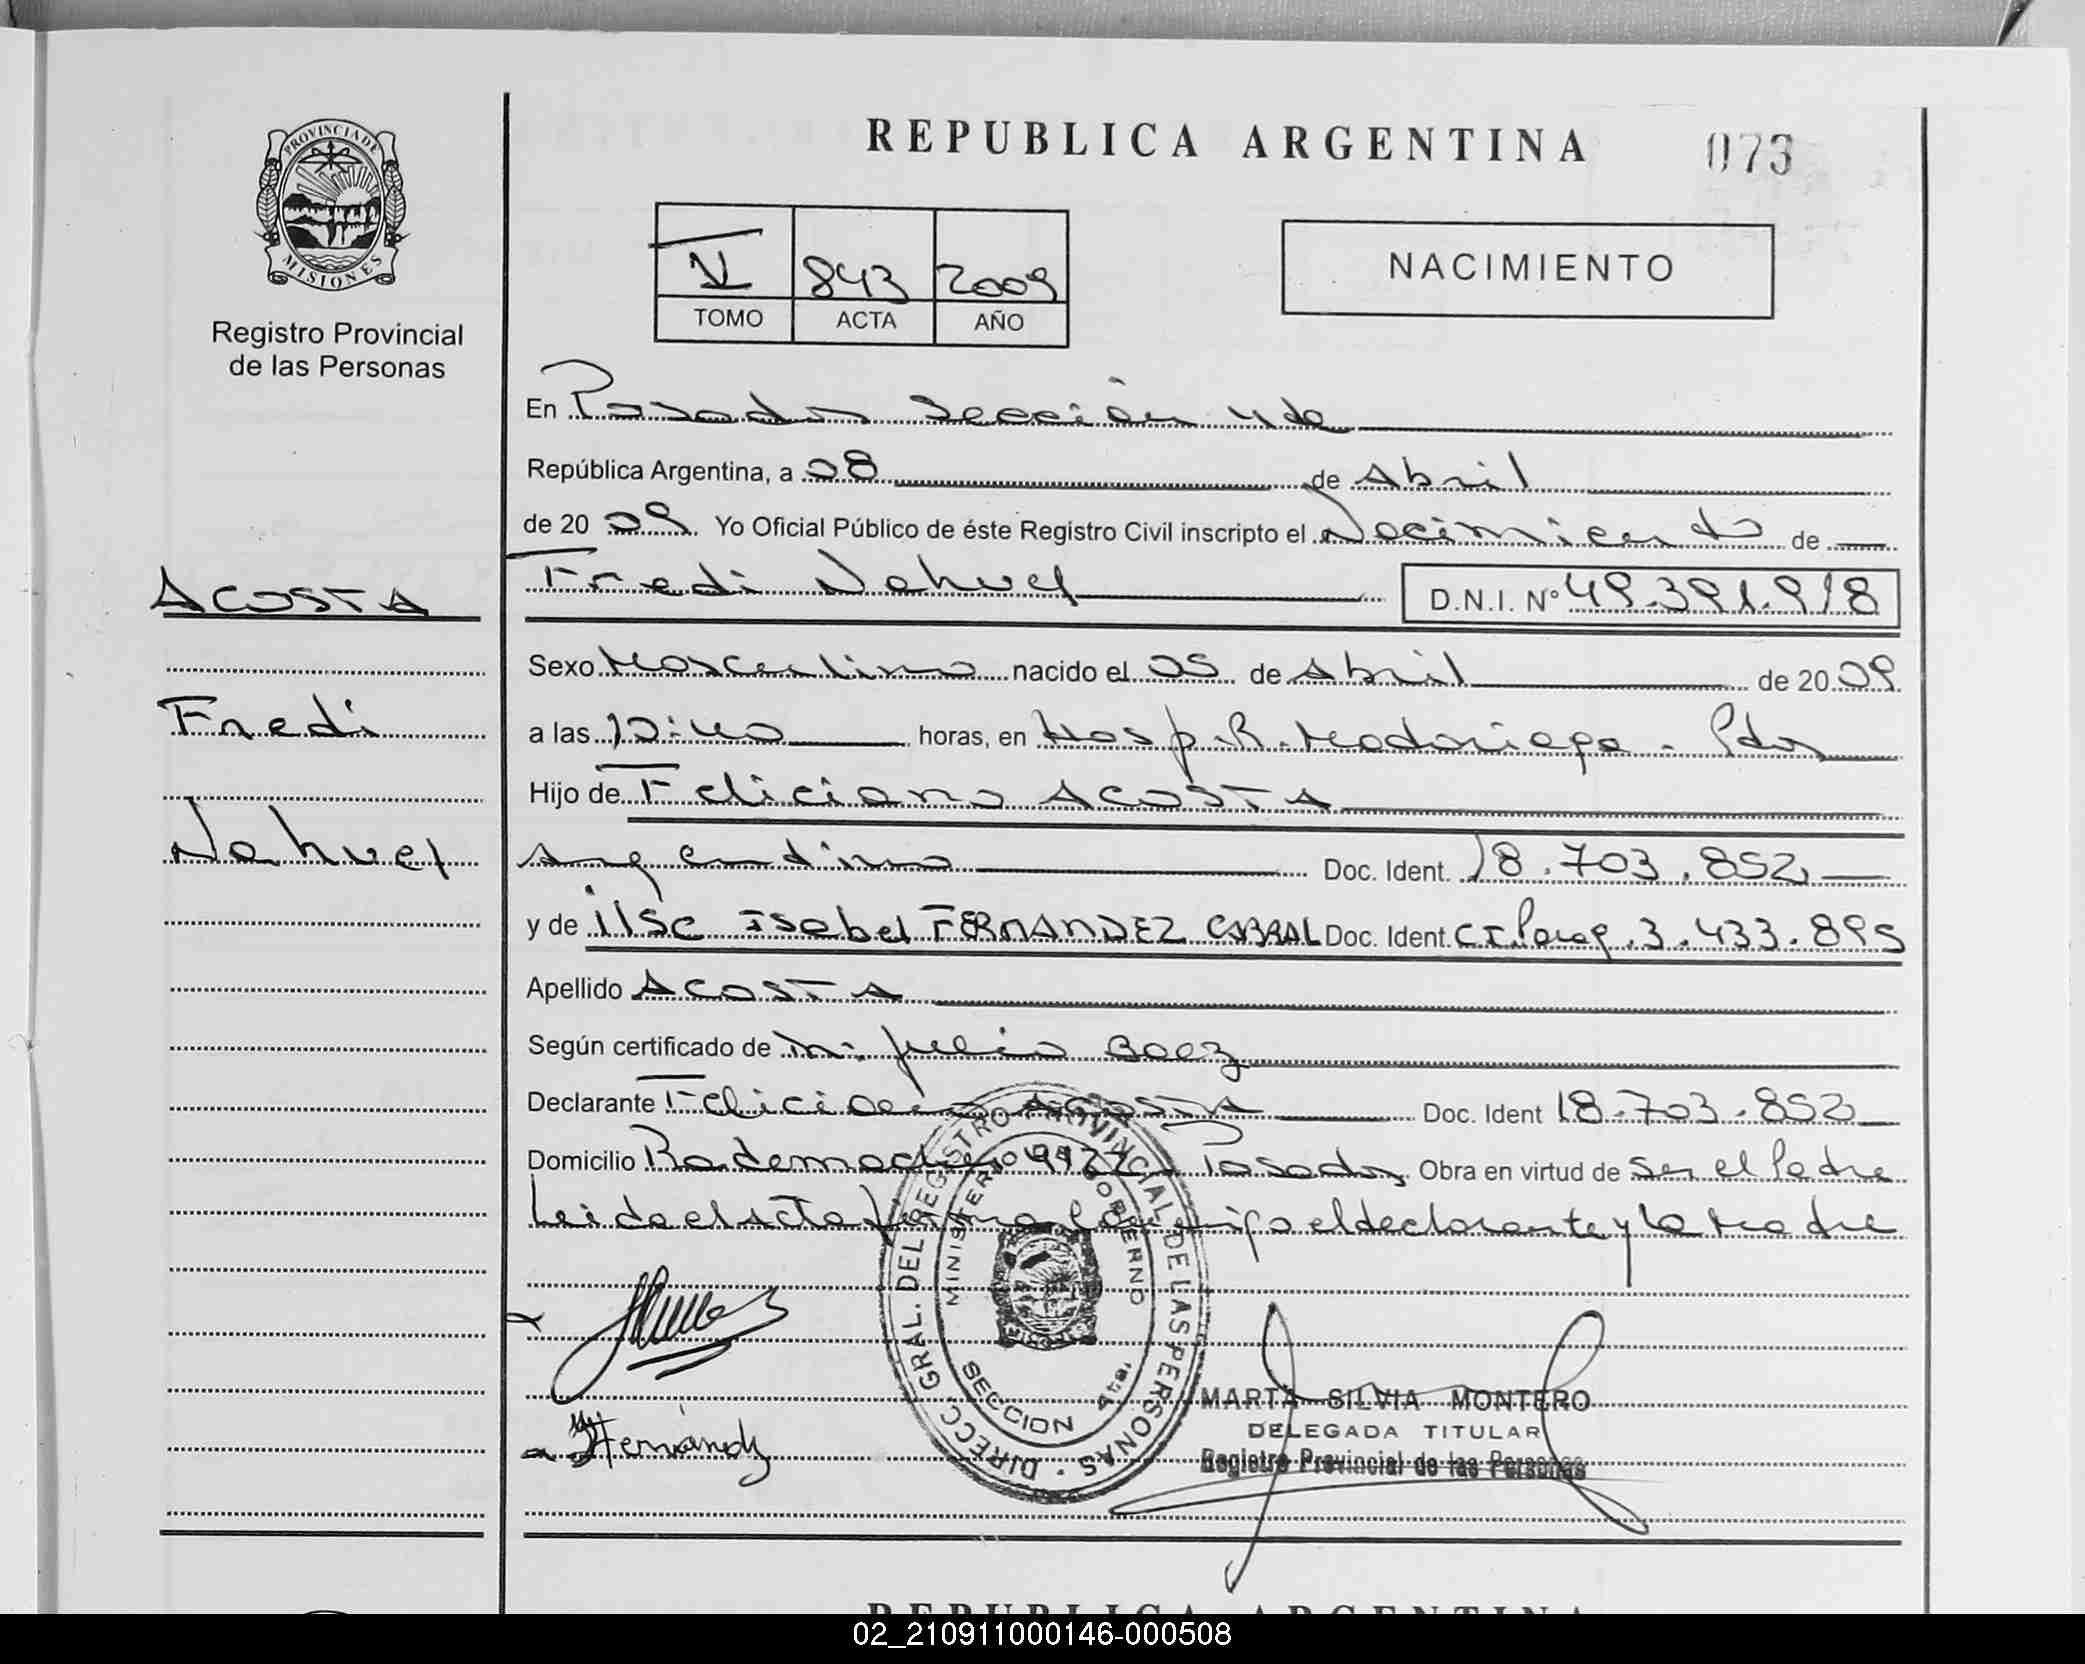 REPUBLICA ARGENTINA 073
PROVINCIA DE
MISIONES
Registro Provincial
de las Personas
V 843 2009
TOMO ACTA AÑO
NACIMIENTO
En Posadas Sección 4ta
República Argentina, a 08 de Abril
de 20 09. Yo Oficial Público de éste Registro Civil inscripto el Nacimiento de
Fredi Nahuel D.N.I. Nº 49.391.918
ACOSTA
Fredi
Nahuel
Sexo Masculino nacido el 05 de Abril de 20 09
a las 10:40 horas, en Hosp. R. Madariaga - Pdas
Hijo de Feliciano ACOSTA
Argentino Doc. Ident. 18.703.852
y de ilse Isabel FERNANDEZ CABRAL Doc. Ident. C.I. Parag. 3.433.895
Apellido ACOSTA
Según certificado de Dr. Julio Baez
Declarante Feliciano ACOSTA Doc. Ident 18.703.852
Domicilio Rademacher 4972 - Posadas Obra en virtud de ser el Padre
Leida el acta firma conmigo el declarante y la Madre
DIRECC. GRAL. DEL REGISTRO PROVINCIAL DE LAS PERSONAS
MINISTERIO GOBIERNO
SECCION 4ta.
MARTA SILVIA MONTERO
DELEGADA TITULAR
Registro Provincial de las Personas
REPUBLICA ARGENTINA
02_210911000146-000508